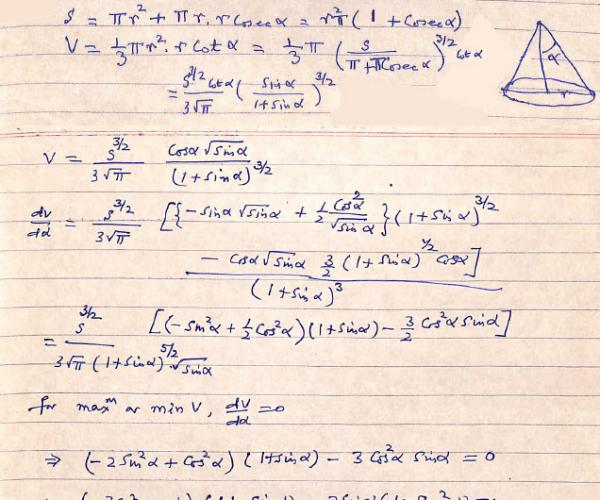 S = πr² + πr. r cosec α = r²π (1 + cosec α)
V = 1/3 πr². r cot α = 1/3 π (S / (π + π cosec α))^3/2 cot α
= S^3/2 cot α / 3√π (sin α / (1 + sin α))^3/2
α
r
V = S^3/2 / 3√π cos α √sin α / (1 + sin α)^3/2
dv/dα = S^3/2 / 3√π [{-sin α √sin α + 1/2 cos²α / √sin α} (1 + sin α)^3/2
- cos α √sin α 3/2 (1 + sin α)^1/2 cos α]
(1 + sin α)³
= S^3/2 / 3√π (1 + sin α)^5/2 √sin α [(-sin²α + 1/2 cos²α)(1 + sin α) - 3/2 cos²α sin α]
for max^m or min V, dV/dα = 0
⇒ (-2 sin²α + cos²α) (1 + sin α) - 3 cos²α sin α = 0